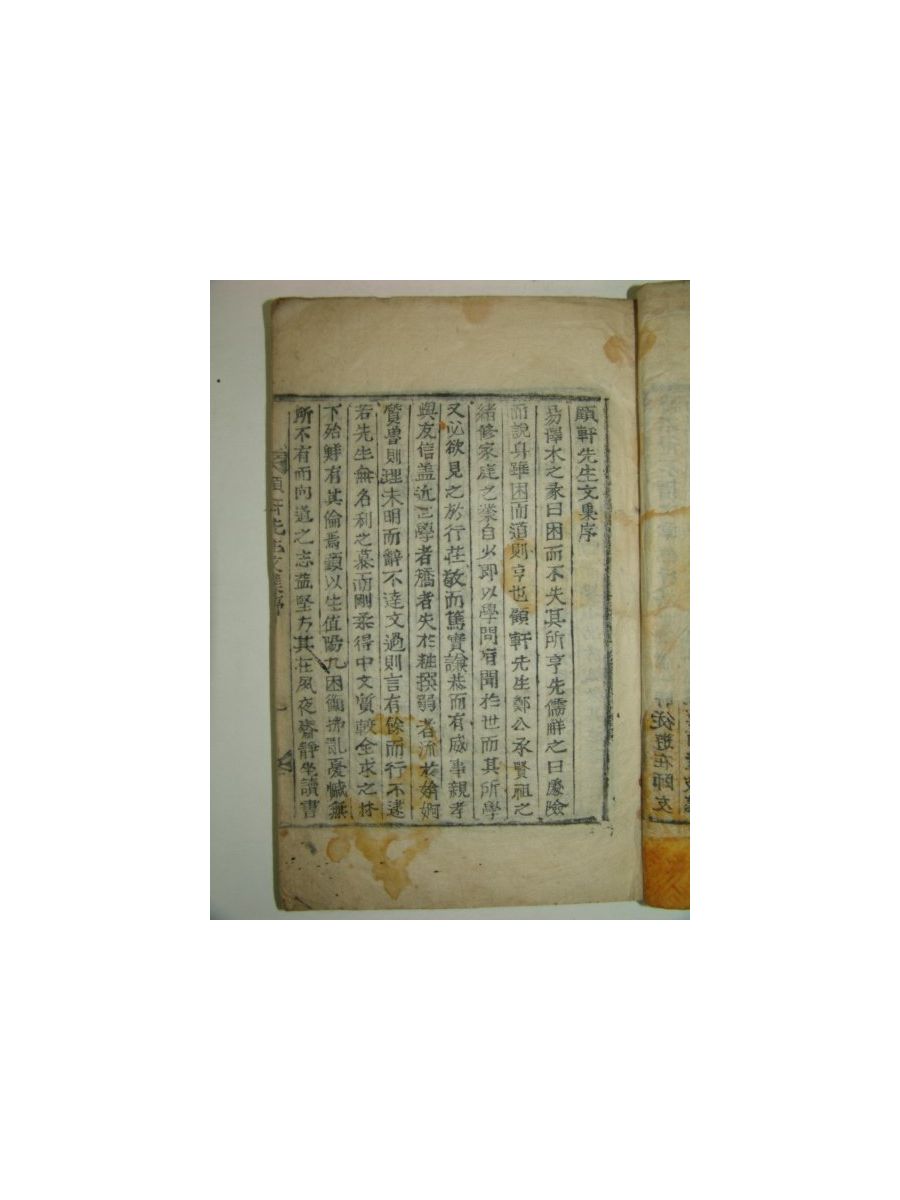 顧軒先生文集序
易澤水之彖曰困而不失其所亨先儒觧之曰處險
而說身雖困而道則亨也顧軒先生鄭公承賢祖之
緒修家庭之業自少即以學問有聞於世而其所學
又必欲見之於行莊敬而篤實謙恭而有威事親孝
與友信盖近世學者矯者失於粗撰弱者流於媕婀
質魯則理未明而辭不達文過則言有餘而行不逮
若先生無名利之慕而剛柔得中文質較全求之林
下殆鮮有其倫焉顧以生值陽九困衡拂亂憂慽無
所不有而向道之志益堅方其在風夜齋靜坐讀書
顧軒先生文集序
從遊在師友